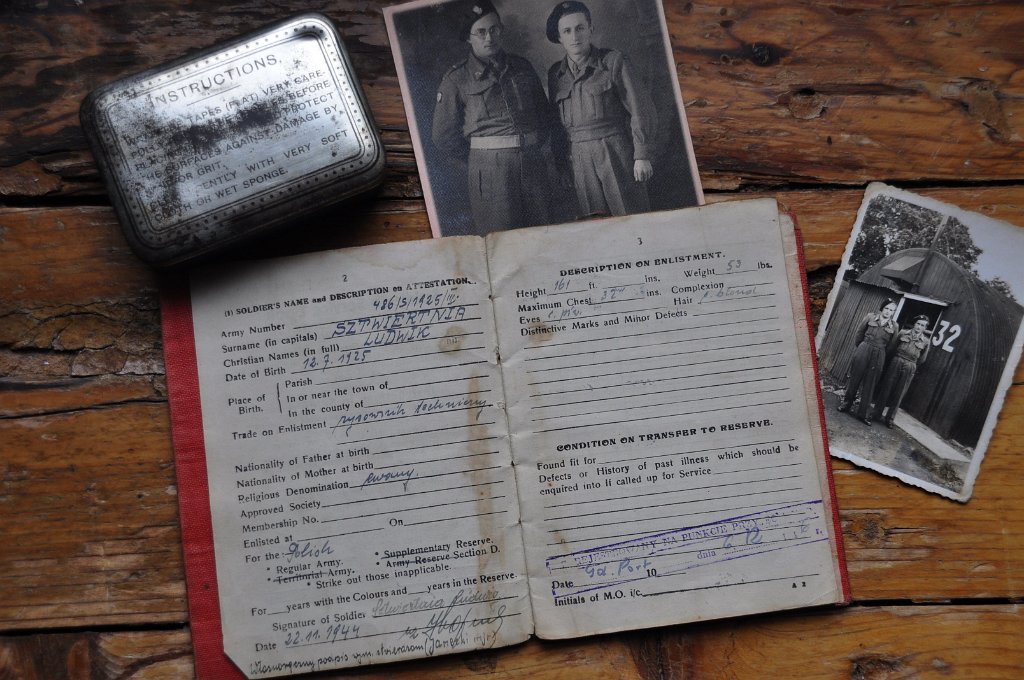 INSTRUCTIONS.
TAPES (FLAT) VERY CARE-
BEFORE
PROTECT
THE SURFACES AGAINST DAMAGE BY
OR GRIT.
GENTLY WITH VERY SOFT
OR WET SPONGE.
32
2
(1) SOLDIER'S NAME and DESCRIPTION on ATTESTATION.
Army Number 486/S/1925/III.
Surname (in capitals) SZTWIERTNIA
Christian Names (in full) LUDWIK
Date of Birth 12.7.1925
Place of Birth.
Parish
In or near the town of
In the county of
Trade on Enlistment rysownik techniczny
Nationality of Father at birth
Nationality of Mother at birth
Religious Denomination ewang.
Approved Society
Membership No. On
Enlisted at
For the: Polish
• Regular Army. • Supplementary Reserve.
• Territorial Army. • Army Reserve Section D.
• Strike out those inapplicable.
For years with the Colours and years in the Reserve.
Signature of Soldier
Date 22.11.1944
3
DESCRIPTION ON ENLISTMENT.
Height 161 ft. ins. Weight 53 lbs.
Maximum Chest ins. Complexion
Eyes Hair c. blond
Distinctive Marks and Minor Defects
CONDITION ON TRANSFER TO RESERVE.
Found fit for
Defects or History of past illness which should be
enquired into if called up for Service
NA PUNKCIE
dnia
Date Gd. Port 10
Initials of M.O. i/c
A 2